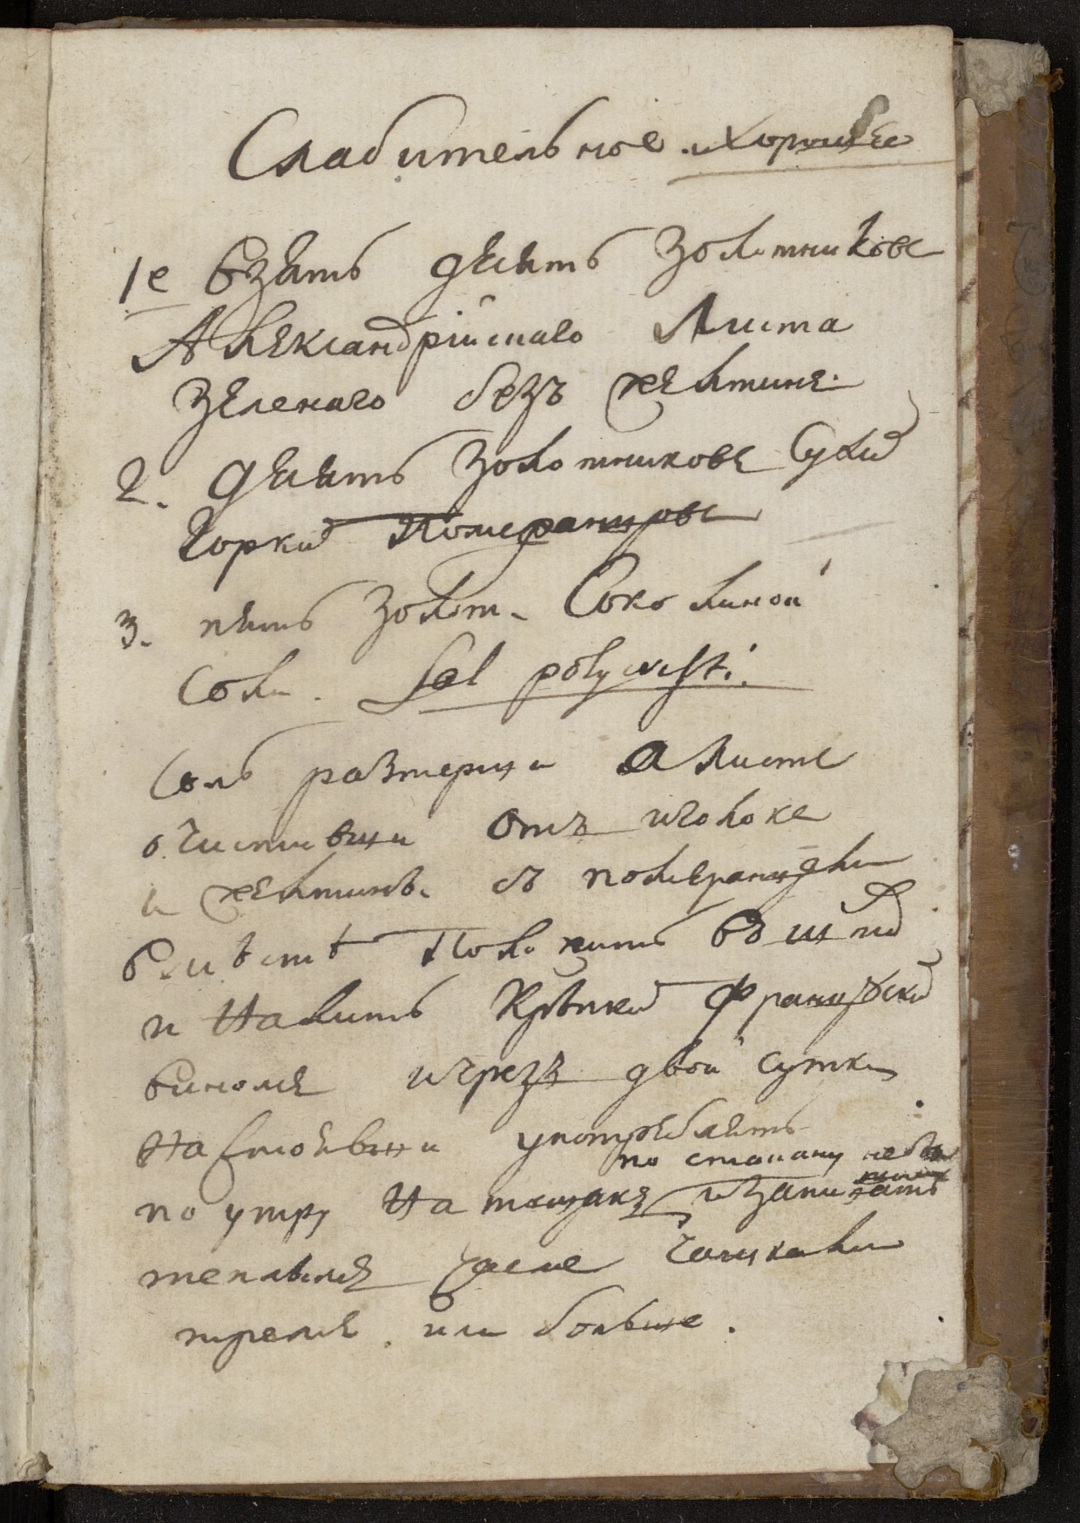 Слабительное и хорошее
1е взять десять золотниковъ
Александрійскаго листа
зеленаго безъ желтине
2. десять золотниковъ сухи
горки померанцовъ
3. пять золот. Соколиной
соли. Sal polycresti.
Соль разтерши а листъ
очистивши отъ иголокъ
и желтинъ съ померанцами
вместѣ положить въ
и налить крѣпки француски
виномъ и чрезъ двои сутки
настоявши употреблять
по стакану
по утру на тощакъ и запивать
теплымъ чаемъ чашками
тремя или больше.